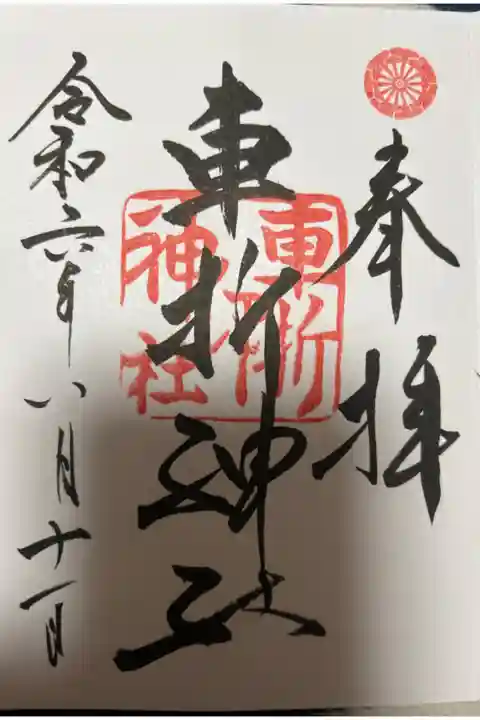 奉拝
車折神社
車折神社
令和六年八月十一日